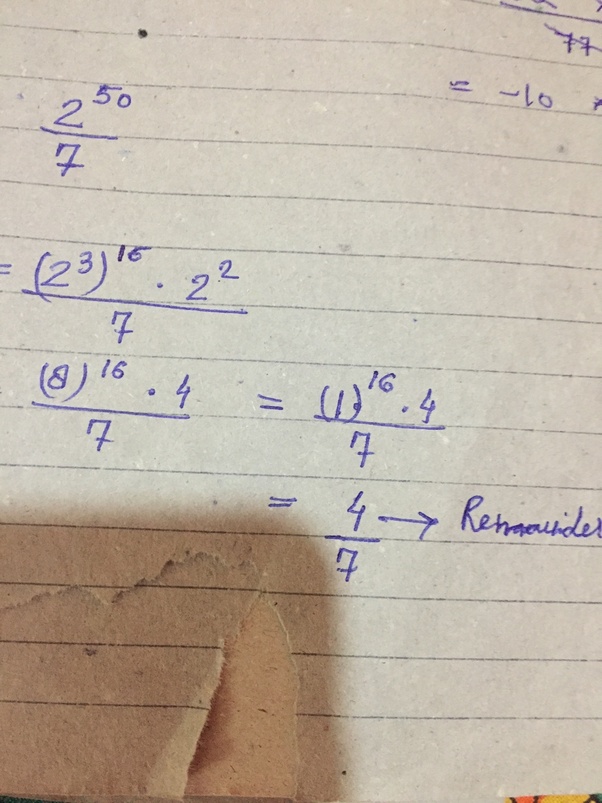 77
= -10
2^50
7
= (2^3)^16 . 2^2
7
(8)^16 . 4 = (1)^16 . 4
7 7
= 4 → Remainder
7